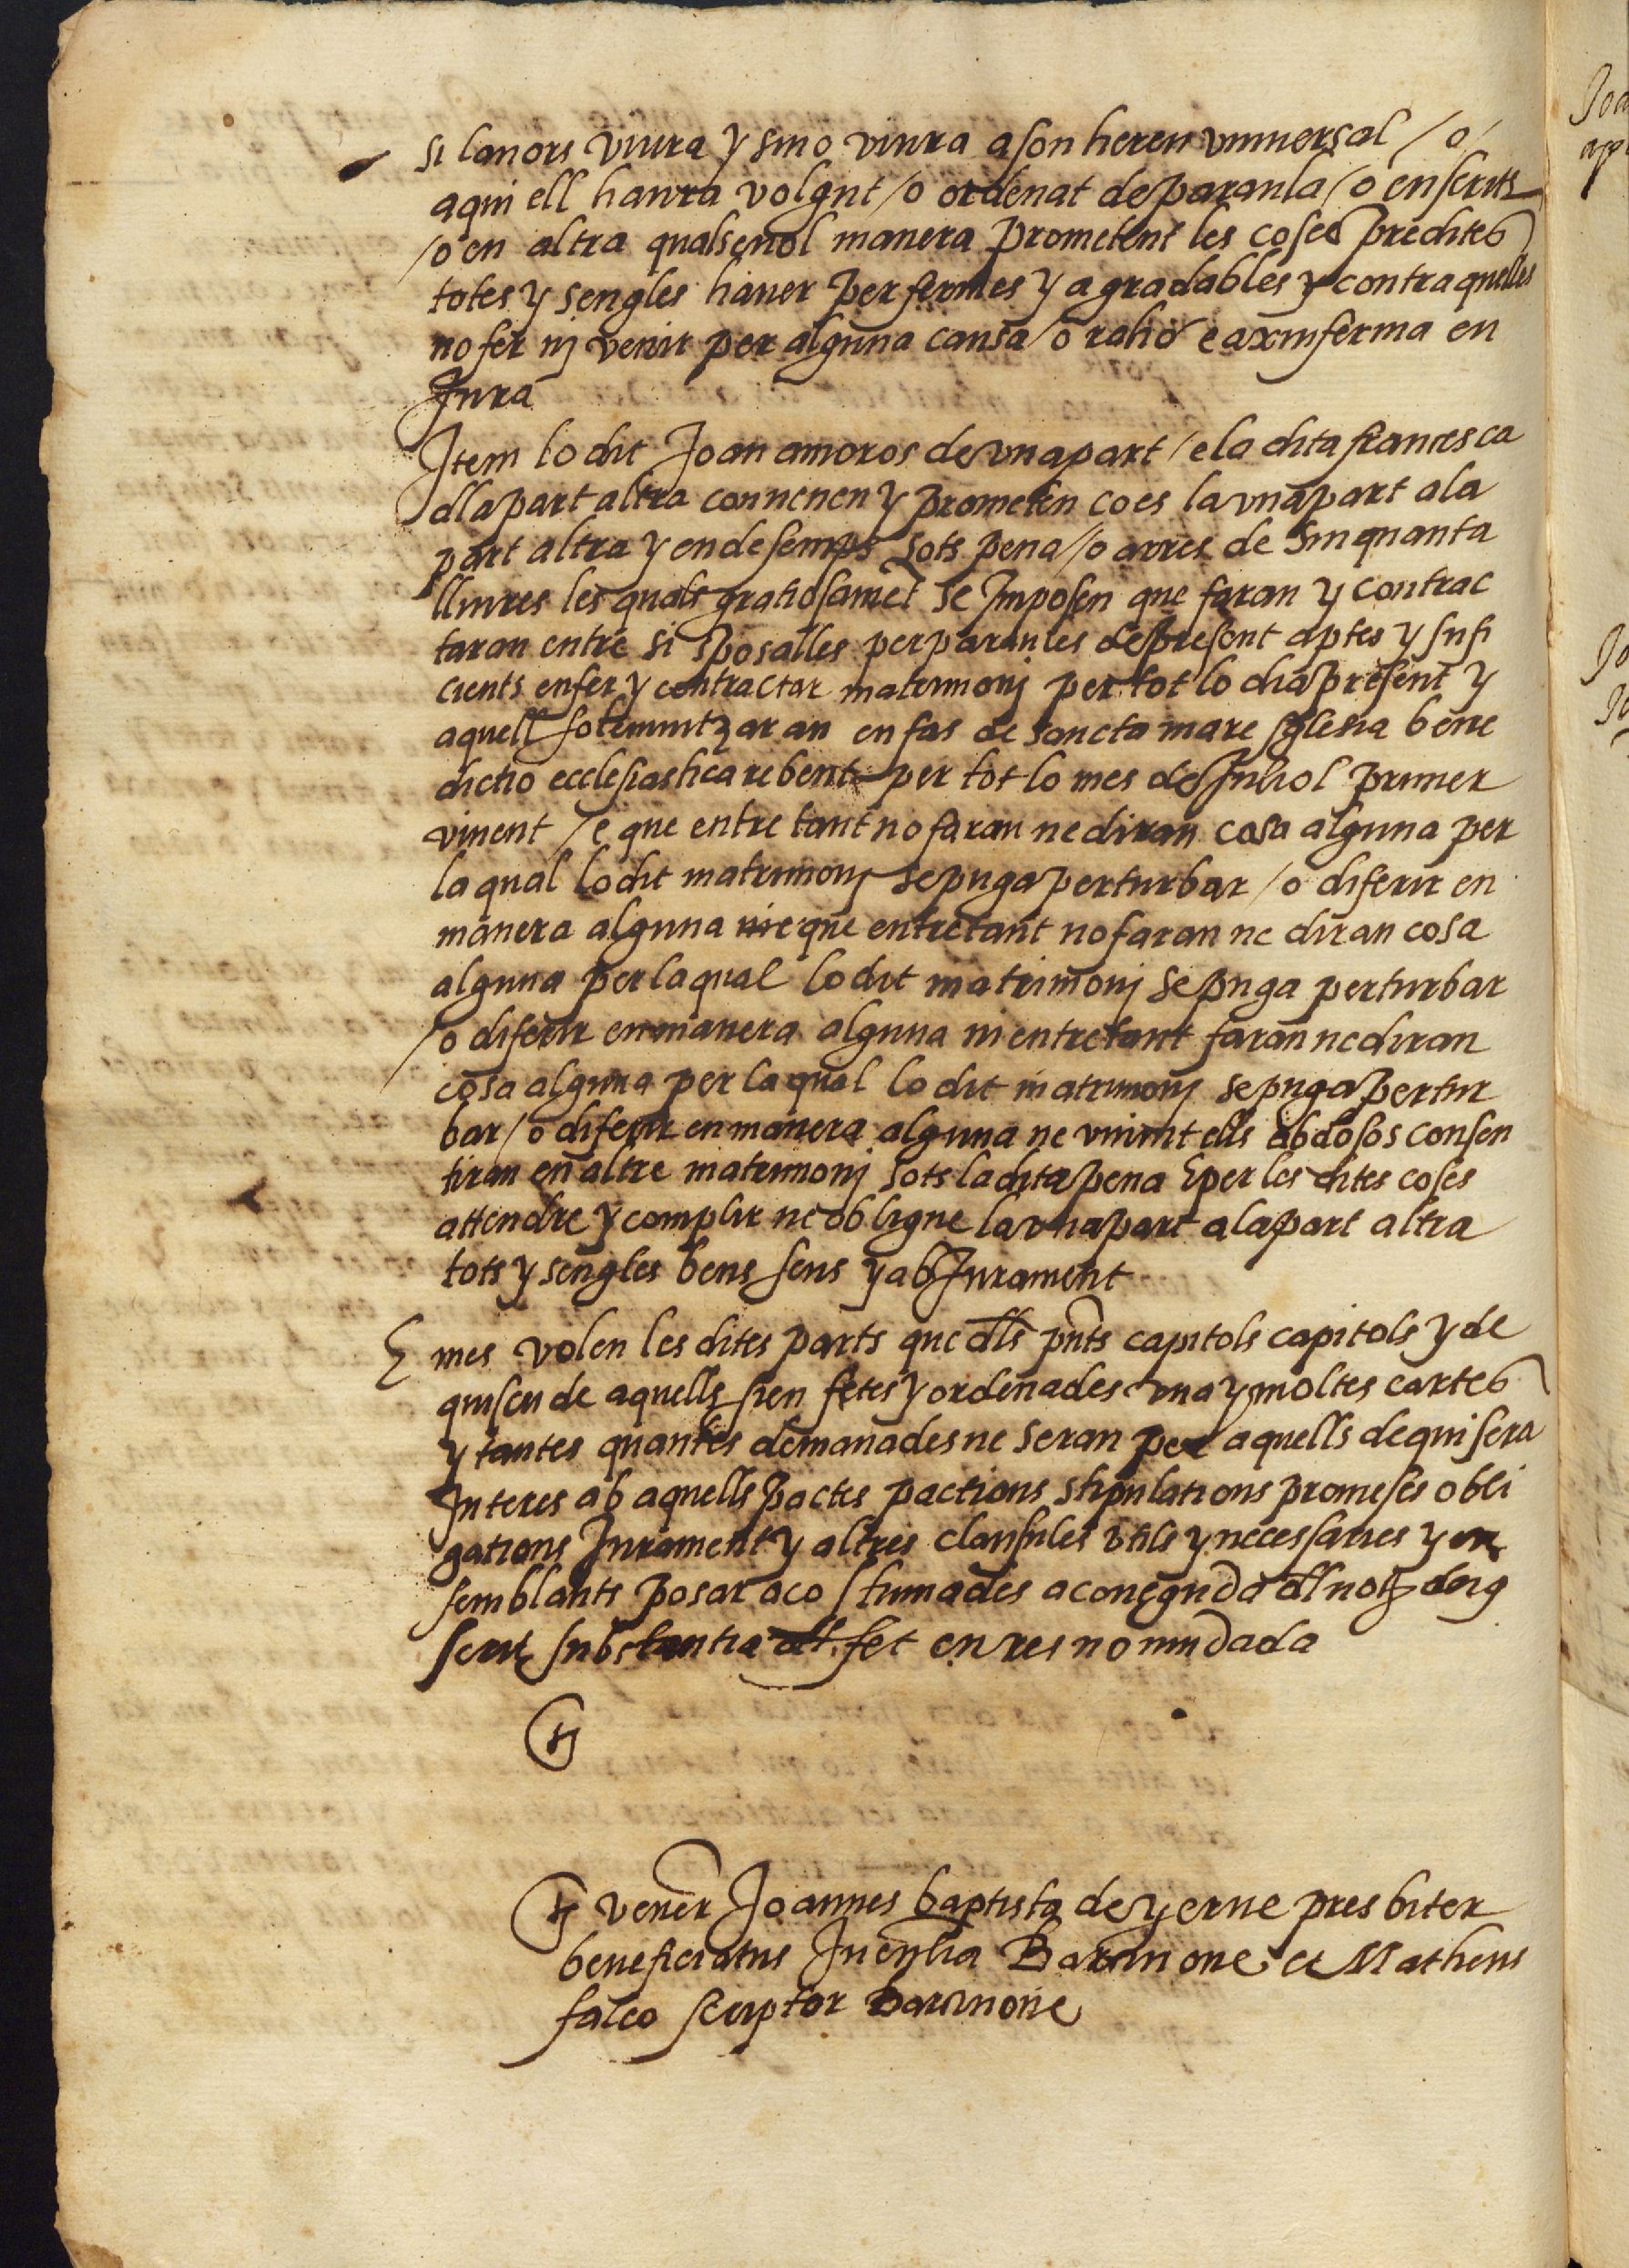 si lanors viura y sino viura a son hereu vniuersal / o /
a qui ell haura volgut / o ordenat de paraula / o en scrits
/ o en altra qualseuol manera prometent les coses predites
totes y sengles hauer per fermes y agradables y contra quelles
no fer nj venir per alguna causa / o rahio e axin ferma en
Jura
Item lo dit Joan amoros de vna part / e la dita francesca
dla part altra conuenen y prometen co es la vna part a la
part altra y endesemps sots pena / o arres de sinquanta
lliures les quals gratiosamet se Imposen que faran y contrac
taran entre si sposalles per paraules de present aptes y sufi
cients en fer y contractar matrimonj per tot lo dia present y
aquell solemnitzaran en fas de sancta mare sglesia bene
dictio ecclesiastica rebent per tot lo mes de Juliol primer
vinent / e que entre tant no faran ne diran cosa alguna per
la qual lo dit matrimonj se puga perturbar / o diferir en
manera alguna nie que entretant no faran ne diran cosa
alguna per la qual lo dit matrimonj se puga perturbar
/ o diferir en manera alguna ni entretant faran ne diran
cosa alguna per la qual lo dit matrimonj se puga pertur
bar / o diferir en manera alguna ne viuint ells abdosos consen
tiran en altre matrimonj sots la dita pena E per les dites coses
attendre y complir ne obligue la vna part a la part altra
tots y sengles bens seus y ab Jurament
E mes volen les dites parts que dls pnts capitols capitols y de
quiscu de aquells sien fetes y ordenades vna y moltes cartes
y tantes quantes demanades ne seran per aquells de qui sera
Interes ab aquells pactes pactions stipulations promeses obli
gations Jurament y altres clausules vtils y necessaries y en
semblants posar acostumades a coneguda dl not deig
scrit substantia dl fet en res no mudada
ts
ts vener Joannes baptista de yerne presbiter
beneficiatus In ecclia Barcinone et Matheus
falco scriptor Barcinone